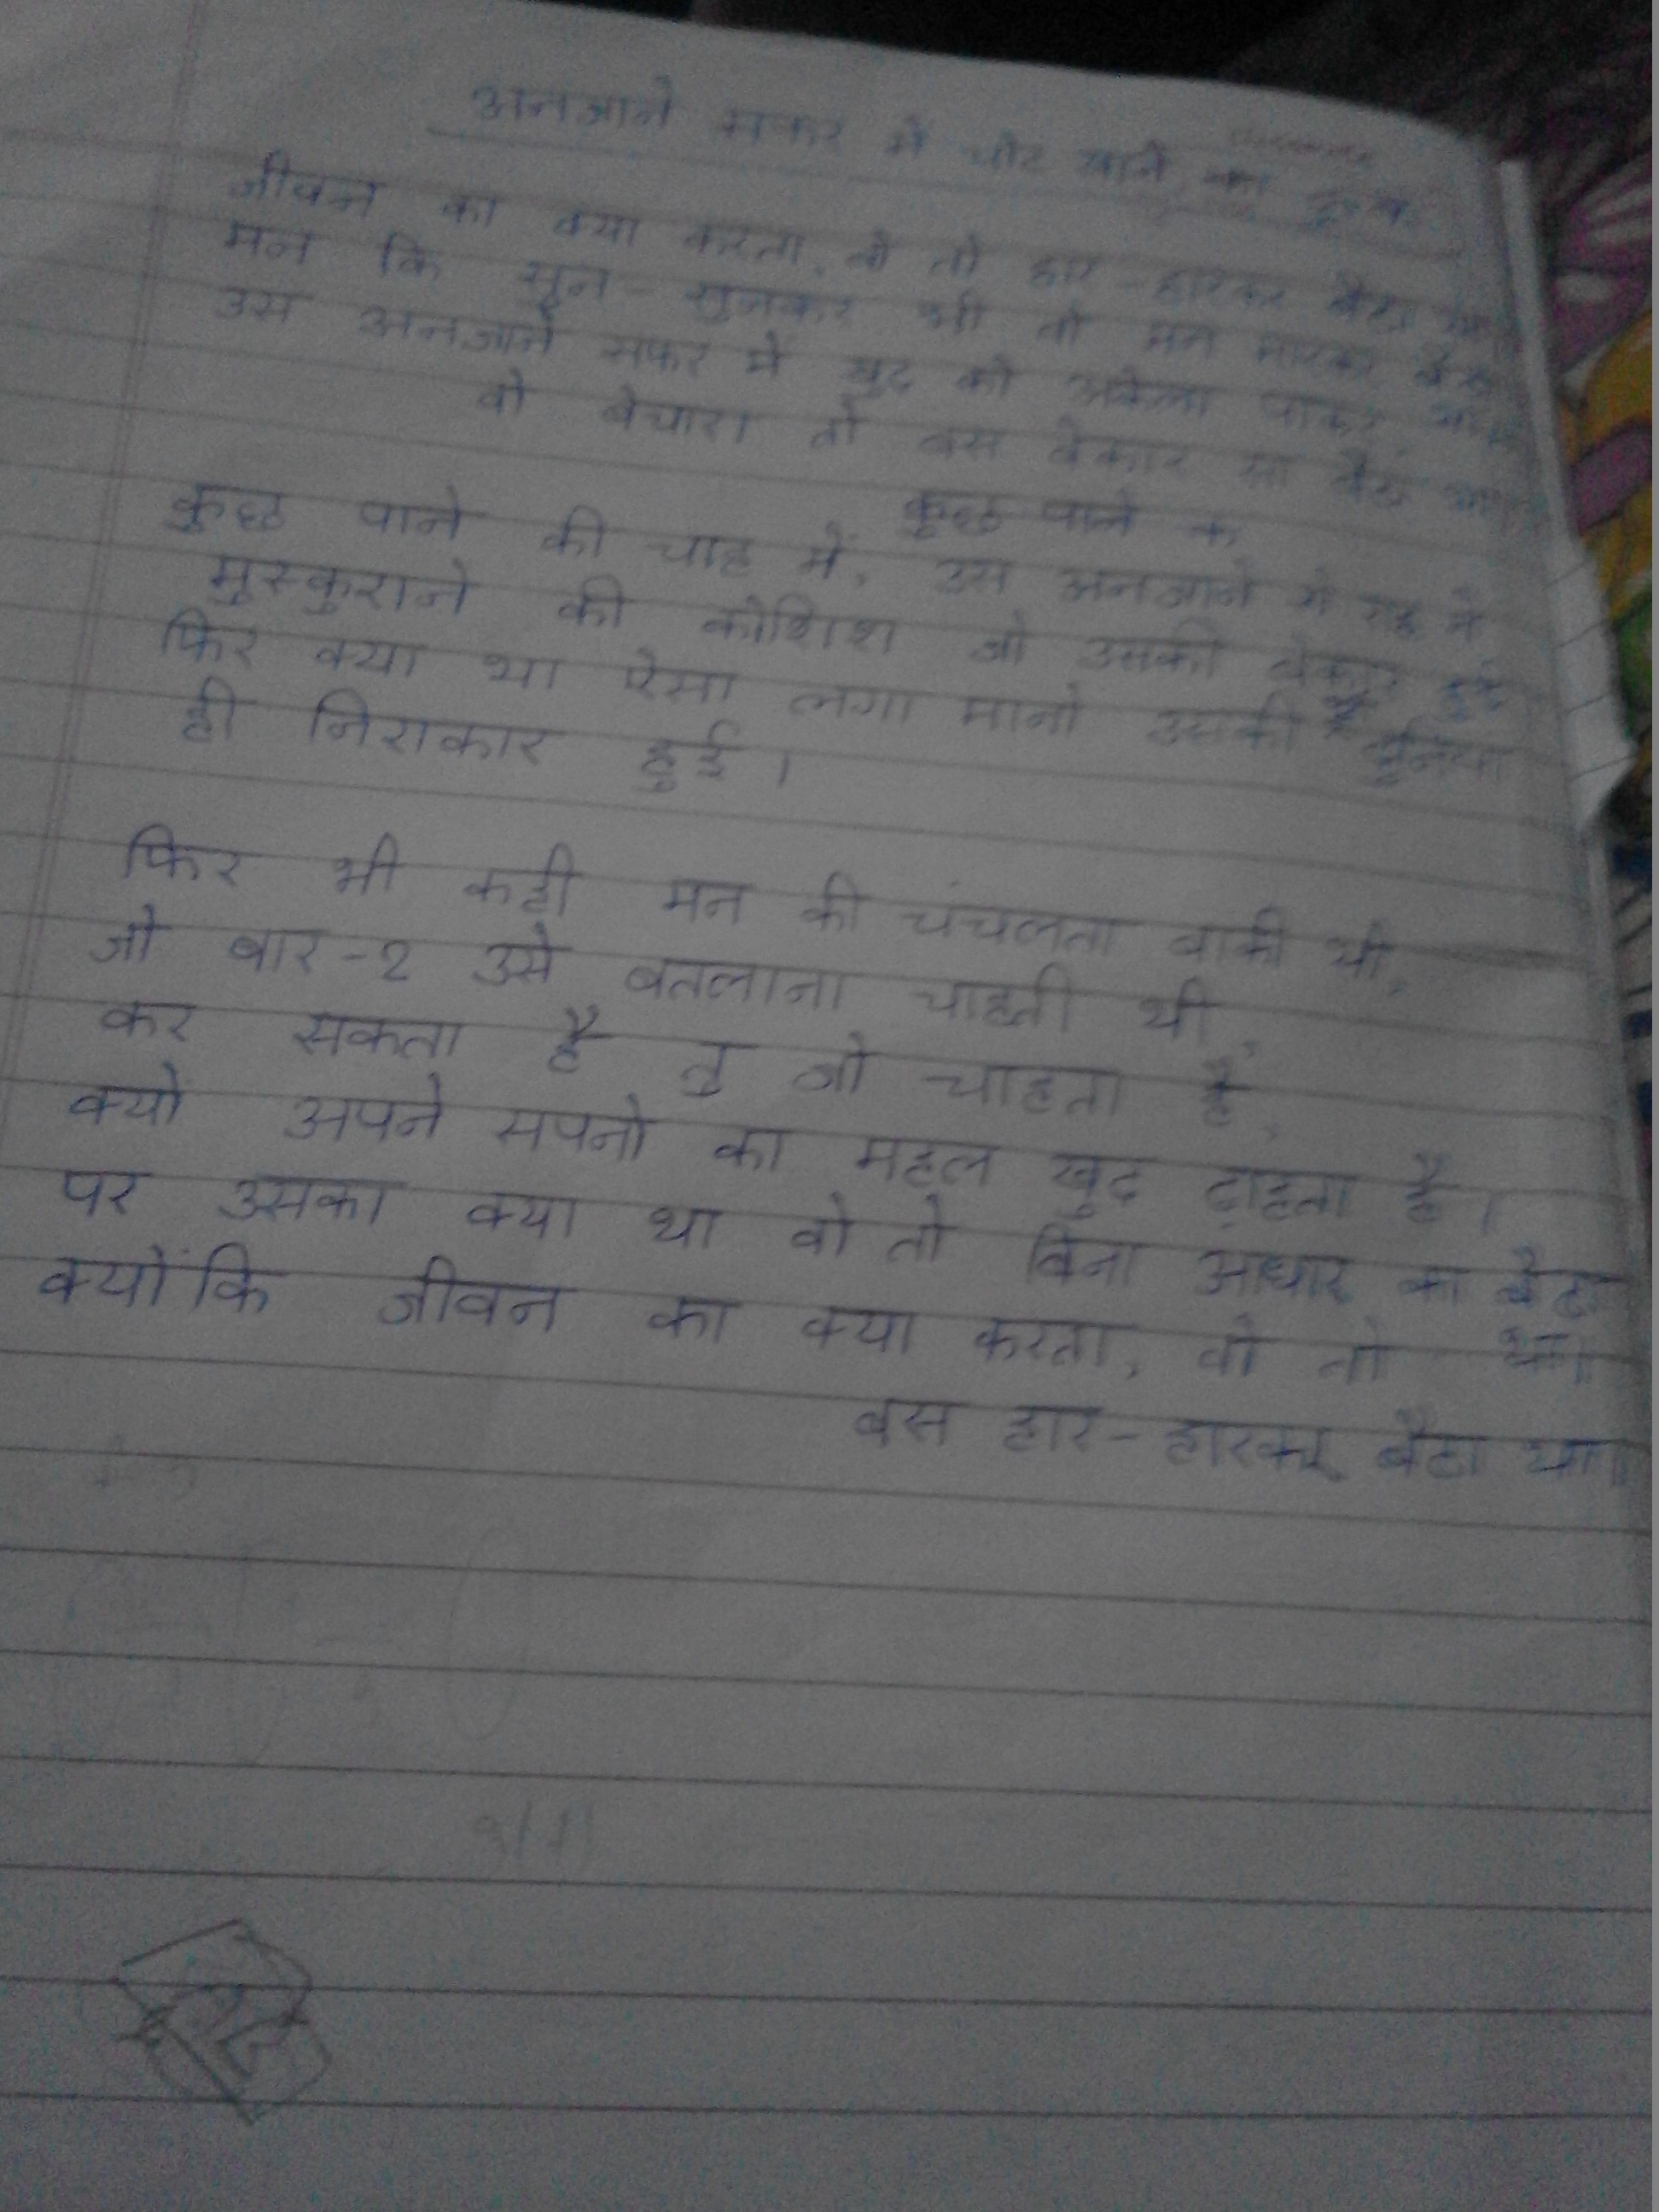 अनजाने सफर में चोट खाने का दुःख
जीवन का क्या करता, वो तो हार-हारकर बैठा था
मन कि सुन-सुनकर भी वो मन मारकर बैठा
उस अनजाने सफर में खुद को अकेला पाकर
वो बेचारा तो बस बेकार सा बैठा था
कुछ पाने क
कुछ पाने की चाह में, उस अनजाने से राह में
मुस्कुराने की कोशिश जो उसकी बेकार हुई
फिर क्या था ऐसा लगा मानो उसकी दुनिया
ही निराकार हुई।
फिर भी कही मन की चंचलता बाकी थी,
जो बार-2 उसे बतलाना चाहती थी,
कर सकता है तु जो चाहता है,
क्यो अपने सपनो का महल खुद ढ़ाहता है।
पर उसका क्या था वो तो बिना आधार का बैठा
था।
क्योंकि जीवन का क्या करता, वो तो
बस हार-हारकर बैठा था॥